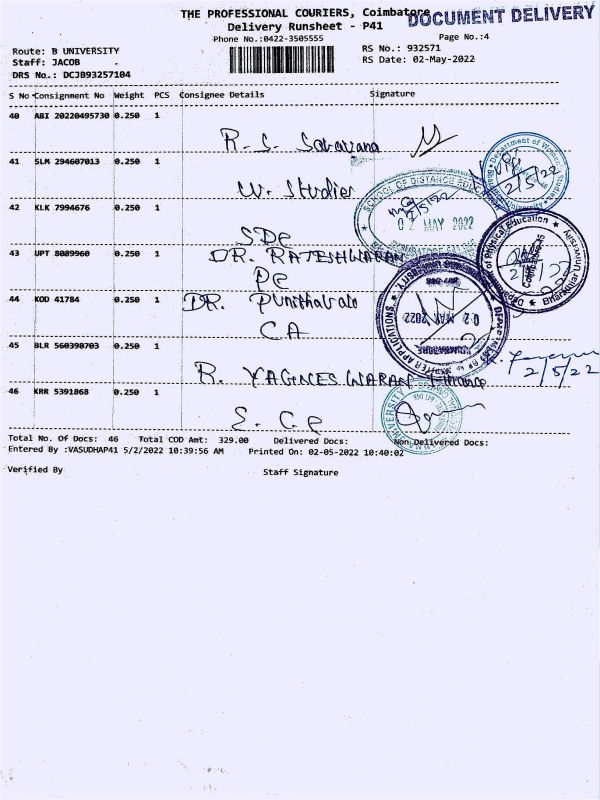 THE PROFESSIONAL COURIERS, Coimbatore
DOCUMENT DELIVERY
Delivery Runsheet - P41
Phone No.:0422-3505555
Page No.:4
Route: B UNIVERSITY
RS No.: 932571
Staff: JACOB
RS Date: 02-May-2022
DRS No.: DCJB93257104
S No Consignment No Weight PCS Consignee Details Signature
40 ABI 20220495730 0.250 1
R. S. Saravana
41 SLM 294607013 0.250 1
W. Studies
2/5/22
SCHOOL OF DISTANCE EDUCATION
2/5/22
02 MAY 2022
42 KLK 7994676 0.250 1
SDE
43 UPT 8089960 0.250 1
DR. RAJESHWARAN
PE
of Physical Education
Bharathiar University
44 KOD 41784 0.250 1
DR. Punithavalli
CA
02 MAY 2022
45 BLR 560398703 0.250 1
R. YAGNESWARAN Finance
2/5/22
46 KRR 5391868 0.250 1
S. C. E
Total No. Of Docs: 46 Total COD Amt: 329.00 Delivered Docs: Non Delivered Docs:
Entered By :VASUDHAP41 5/2/2022 10:39:56 AM Printed On: 02-05-2022 10:40:02
Verified By Staff Signature